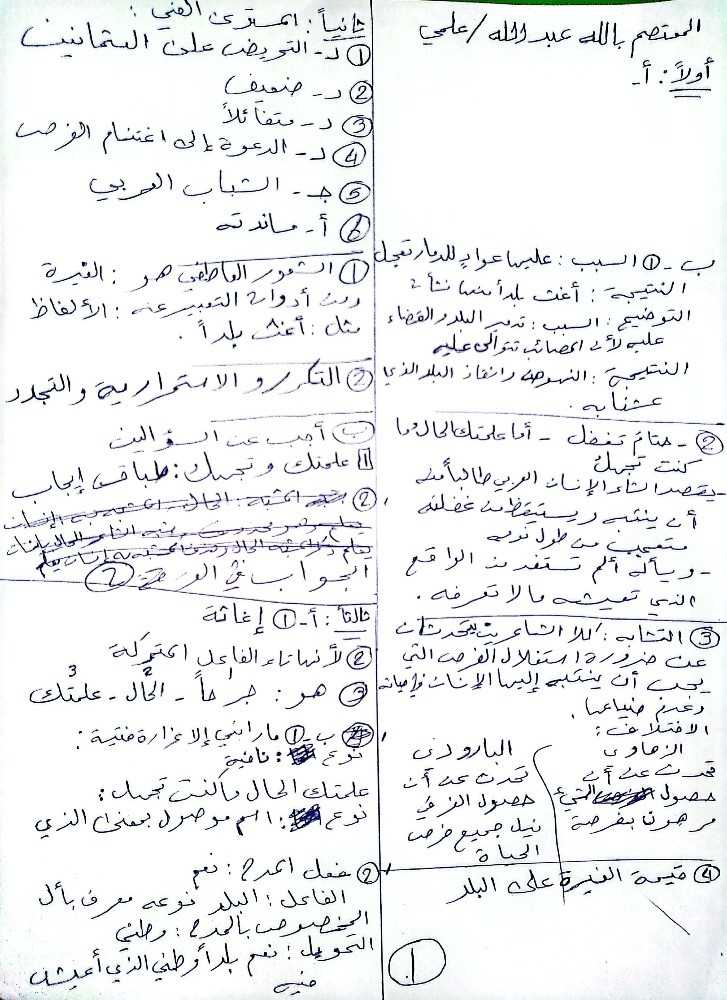 المعتصم بالله عبد الله / علمي
أولاً: أ-
ب - ① السبب: عليها عوادٍ للدمار تعجل
النتيجة: أغث بلداً منها نشأت
التوضيح: السبب: تدمير البلد والقضاء
عليه لأن المصائب تتوالى عليه
النتيجة: النهوض وإنقاذ البلد الذي
عشنا به.
② - حتامَ تغفل - أما علمتك الحال ما
كنت تجهلُ
- يقصد الشاعر الإنسان العربي طالباً منه
أن ينتبه ويستيقظ من غفلته
متعجب من طول نومه
- ويسأله ألم تستفد من الواقع
الذي تعيشه ما لا تعرفه.
③ التشابه: كلا الشاعرين يتحدثان
عن ضرورة استغلال الفرص التي
يجب أن ينتبه إليها الإنسان في حياته
وعدم ضياعها.
الاختلاف:
الزهاوي
تحدث عن أن
حصول الشيء
مرهون بفرصة
البارودي
تحدث عن أن
حصول الرزق في
نيل جميع فرص
الحياة
④ قيمة الغيرة على البلد
ثانياً: المستوى الفني:
① د- التحريض على العثمانيين
② د- ضعيف
③ د- متفائلاً
④ د- الدعوة إلى اغتنام الفرص
⑤ جـ- الشباب العربي
⑥ أ- مساندته
① الشعور العاطفي هو: الغيرة
ومن أدوات التعبير عنه: الألفاظ
مثل: أغث بلداً.
② التكرار والاستمرارية والتجدد
ب أجب عن السؤالين
1 علمتك وتجهل: طباق إيجاب
②
الجواب في الورقة ②
ثالثاً: أ- ① إغاثة
② لأنها تاء الفاعل المتحركة
③ هو: جراحاً - الحال - علمتك
ب - ① ما رابني إلا غرارة فتية:
نوع ما: نافية
علمتك الحال ما كنت تجهل:
نوع ما: اسم موصول بمعنى الذي
② فعل المدح: نعم
الفاعل: البلد نوعه معرف بأل
المخصوص بالمدح: وطني
التحويل: نعم بلداً وطني الذي أعيش
فيه
1